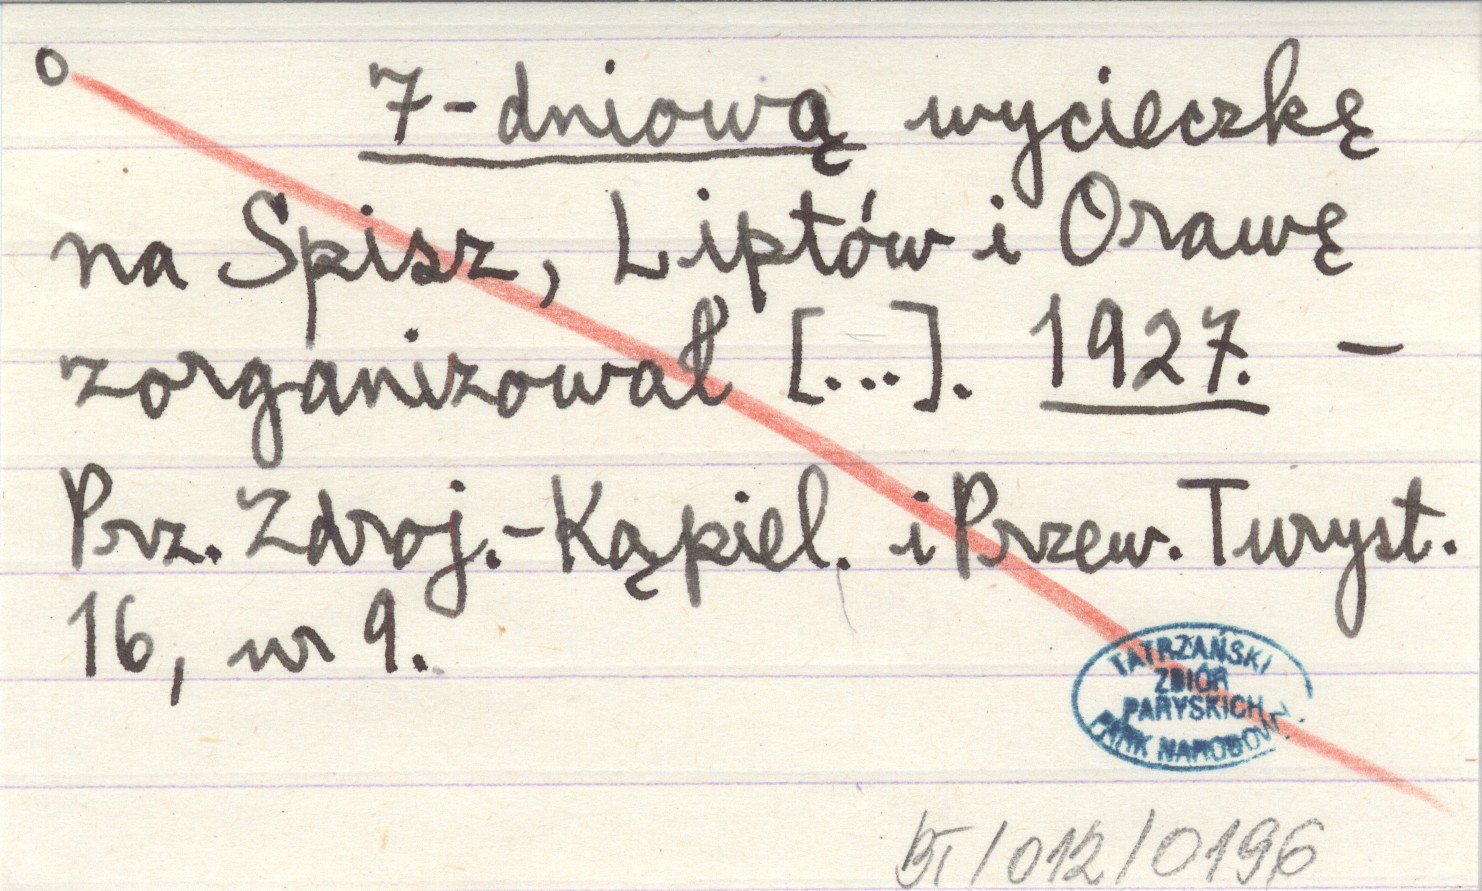 o 7-dniową wycieczkę
na Spisz, Liptów i Orawę
zorganizował [...]. 1927. -
Prz. Zdroj.-Kąpiel. i Przew. Turyst.
16, nr 9.
TATRZAŃSKI
ZBIÓR
PARYSKICH
PARK NARODOWY
BT/012/0196